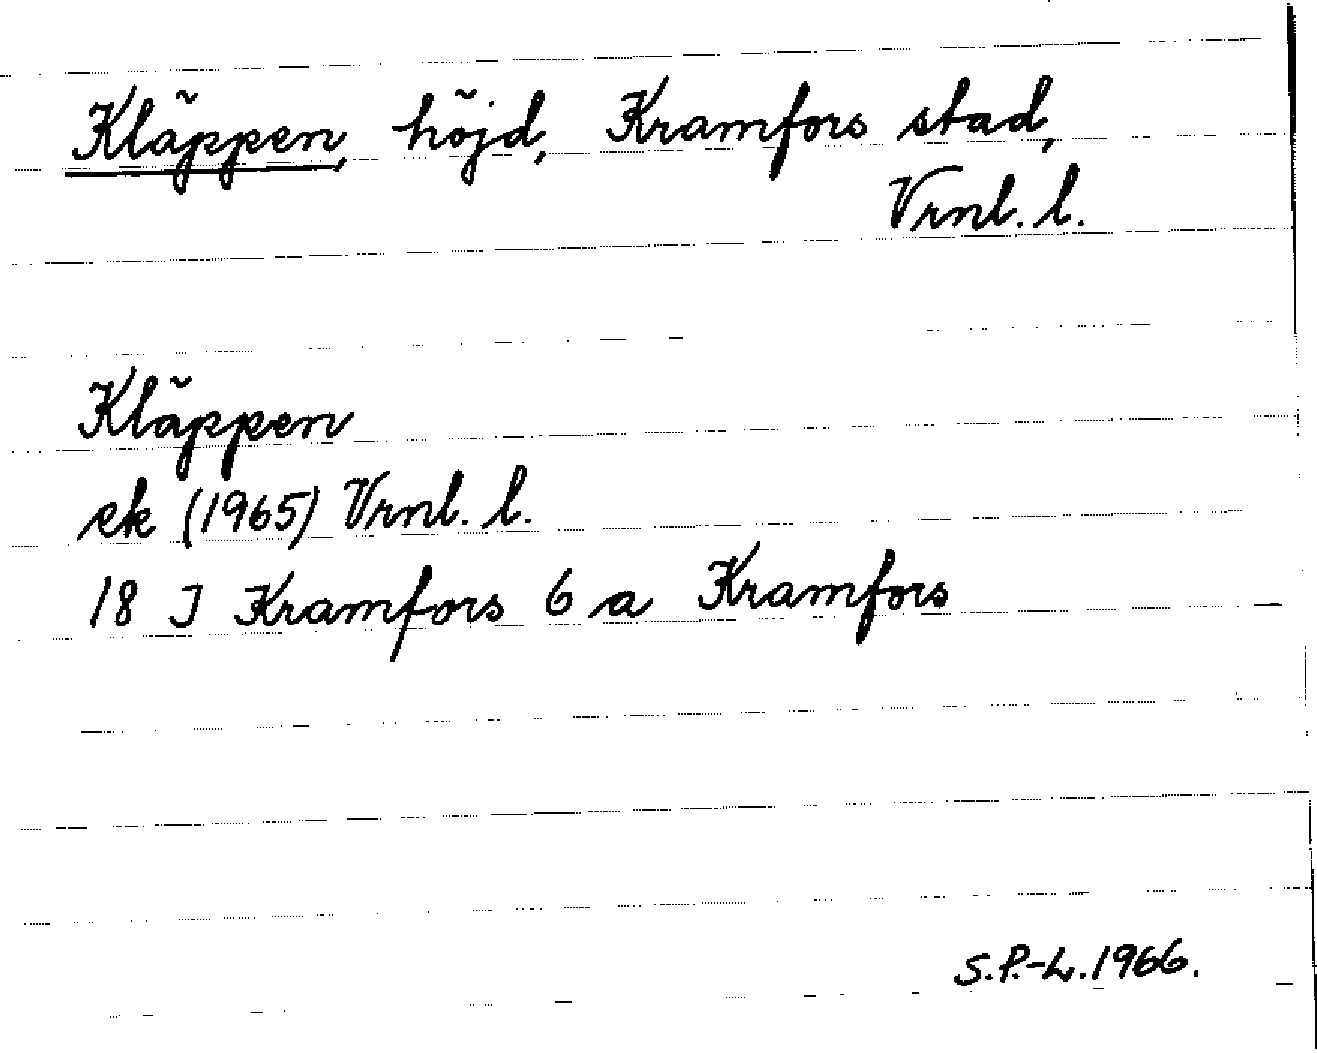 Kläppen, höjd, Kramfors stad,
Vrnl. l.
Kläppen
ek (1965) Vrnl. l.
18 I Kramfors 6 a Kramfors
S.P.-L.1966.